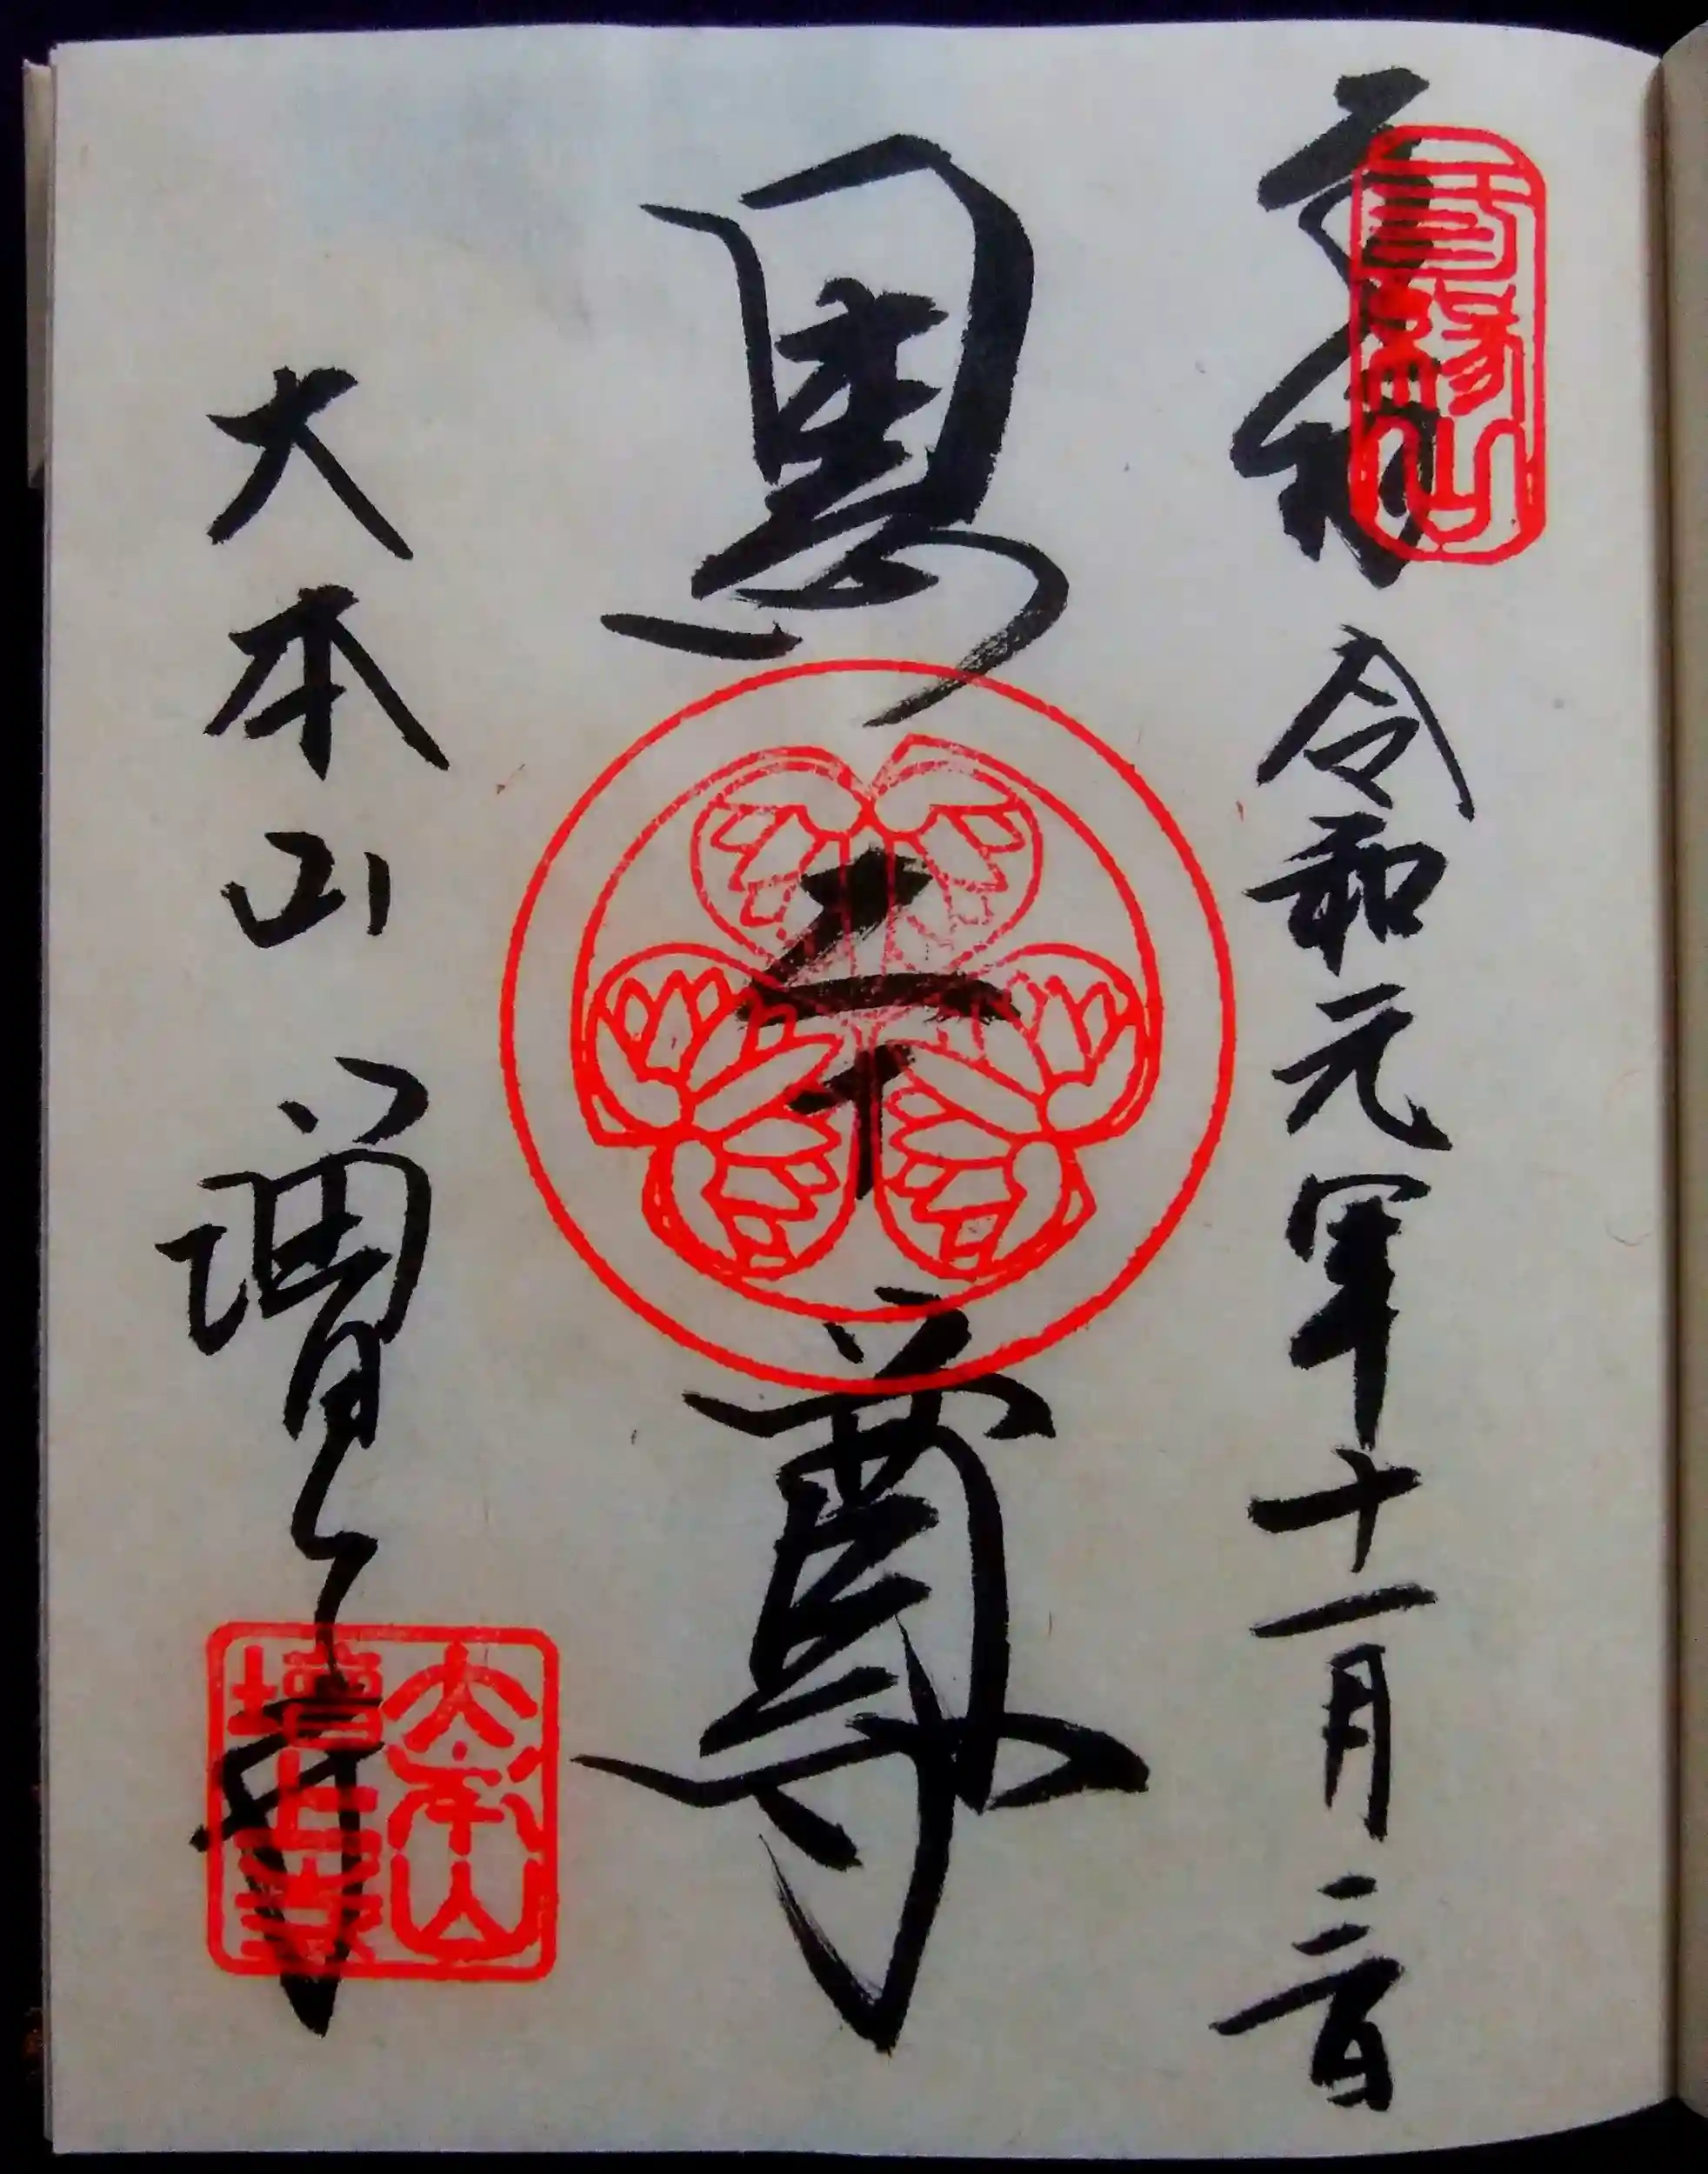 奉拝 令和元年十一月三日
三縁山
黒本尊
大本山 増上寺
大本山
増上寺